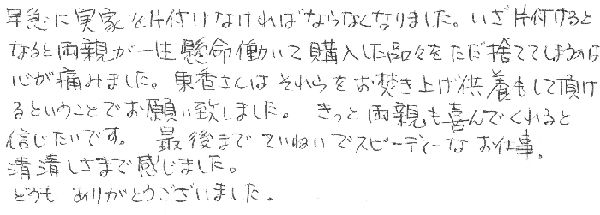 早急に実家を片付けなければならなくなりました。いざ片付けると
なると両親が一生懸命働いて購入した品々をただ捨ててしまうのは
心が痛みました。東香さんはそれらをお焚き上げ供養もして頂け
るということでお願い致しました。きっと両親も喜んでくれると
信じたいです。最後までていねいでスピーディーなお仕事。
清清しさまで感じました。
どうも ありがとうございました。